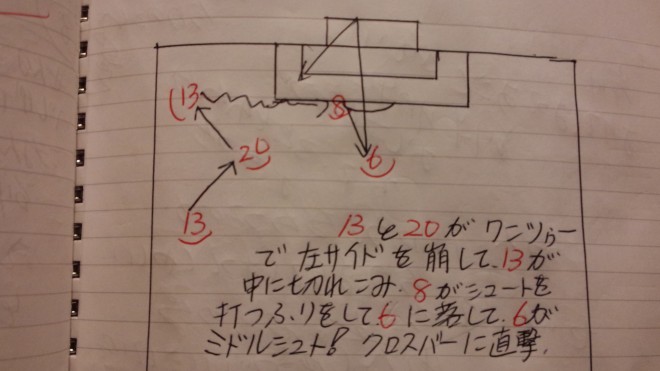 13
8
20
6
13
13と20がワンツゥー
で左サイドを崩して、13が
中に切れこみ、8がシュートを
打つふりをして6に落して、6が
ミドルシュート!クロスバーに直撃.